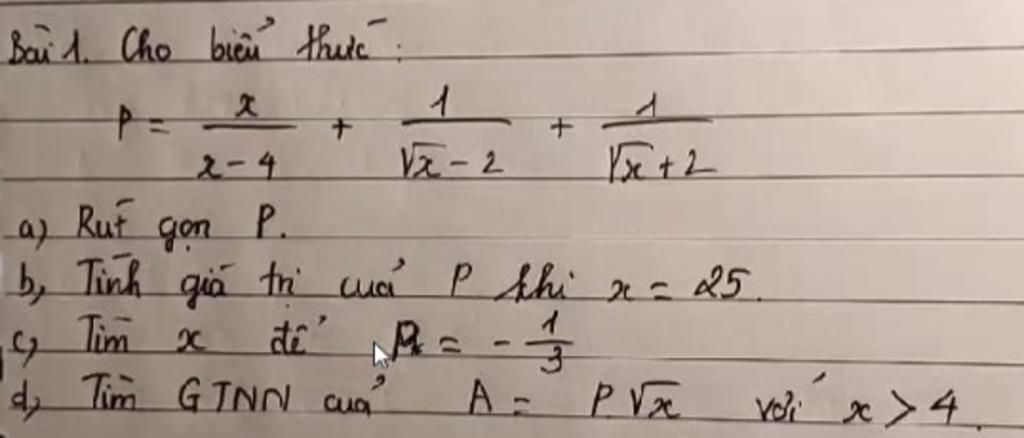 Bài 1. Cho biểu thức:
P = x/(x - 4) + 1/(√x - 2) + 1/(√x + 2)
a) Rút gọn P.
b, Tính giá trị của P khi x = 25.
c, Tìm x để P = - 1/3
d, Tìm GTNN của A = P.√x với x > 4.